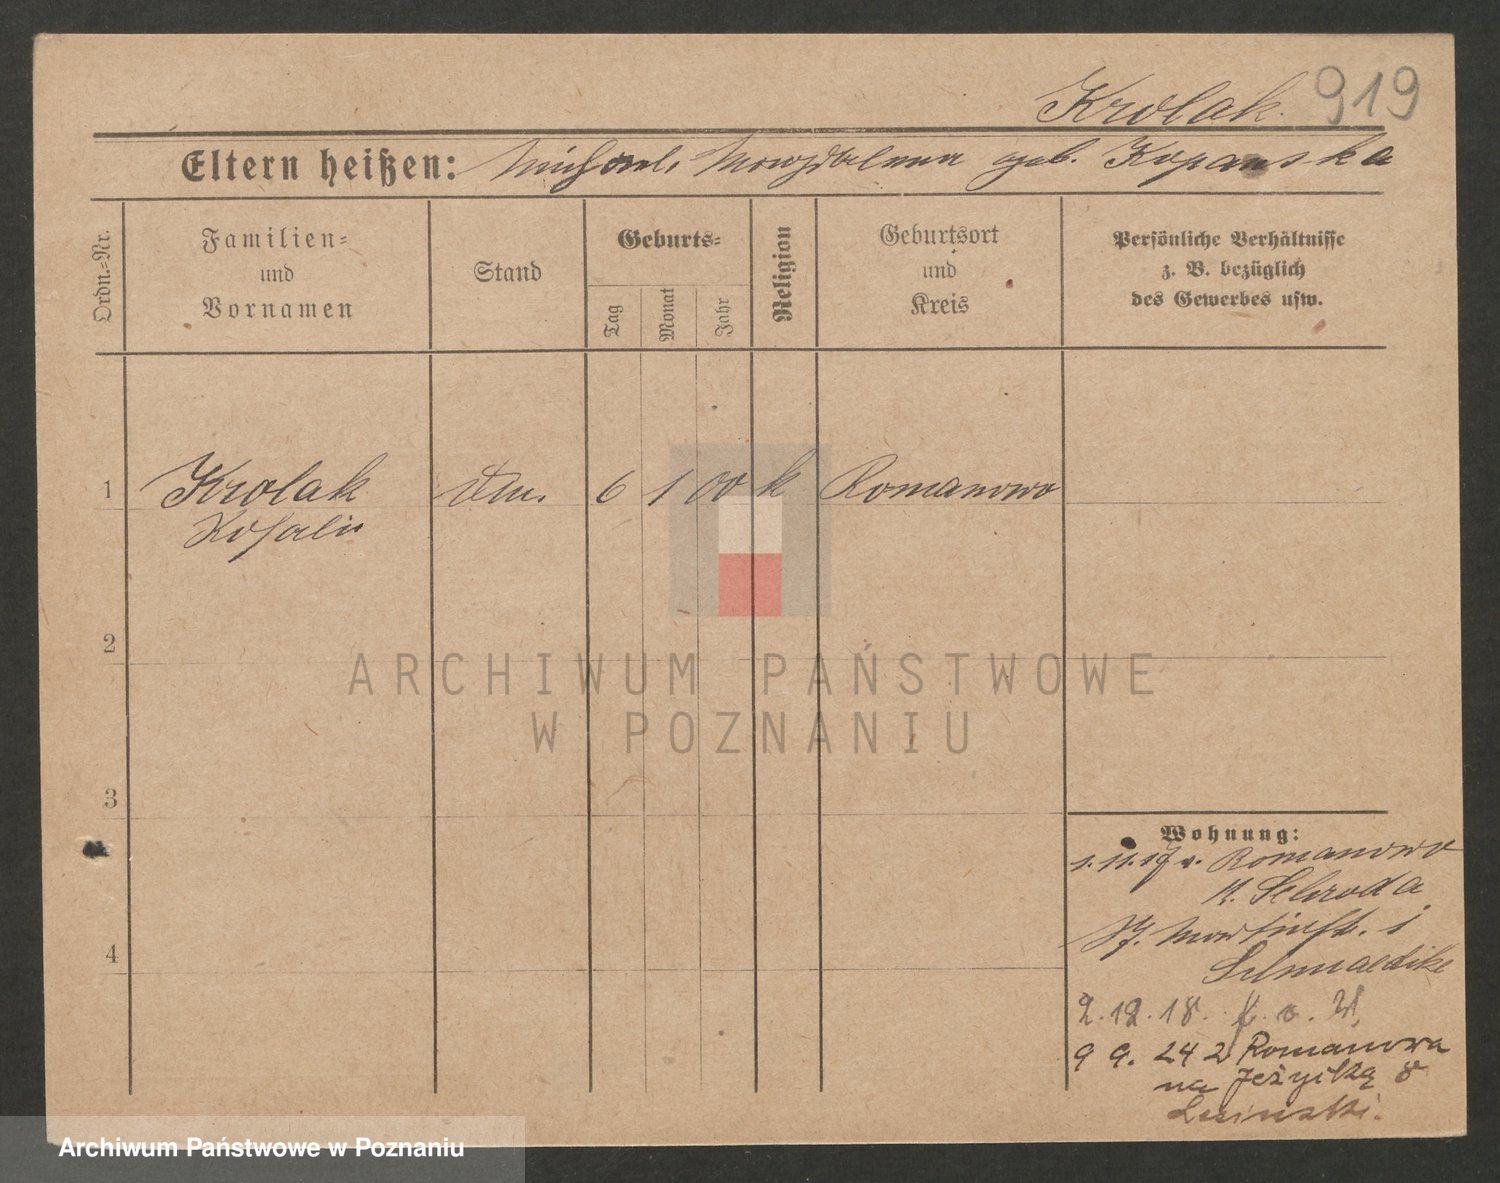 Krolak. 919
Eltern heißen: Michael, Magdalena geb. Kopanska
Ordn.-Nr.
Familien-
und
Vornamen
Stand
Geburts-
Tag
Monat
Jahr
Religion
Geburtsort
und
Kreis
Persönliche Verhältnisse
z. B. bezüglich
des Gewerbes usw.
1 Krolak 6 1 00 k Romanowo
Rosalie
2
3
4
Wohnung:
1.11.17 v. Romanowo
K. Schroda
Martinstr.
Schmaedike
2.12.18.
9 9. 24 z Romanowa
na Jeżycką 8
ARCHIWUM PAŃSTWOWE
W POZNANIU
Archiwum Państwowe w Poznaniu